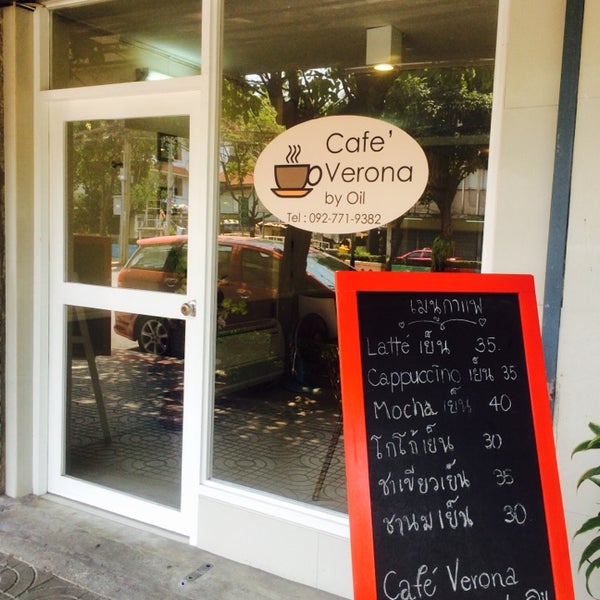 Cafe'
Verona
by Oil
Tel : 092-771-9382
เมนูกาแฟ
Latté เย็น 35.
Cappuccino เย็น 35
Mocha เย็น 40
โกโก้เย็น 30
ชาเขียวเย็น 35
ชานมเย็น 30
Café Verona